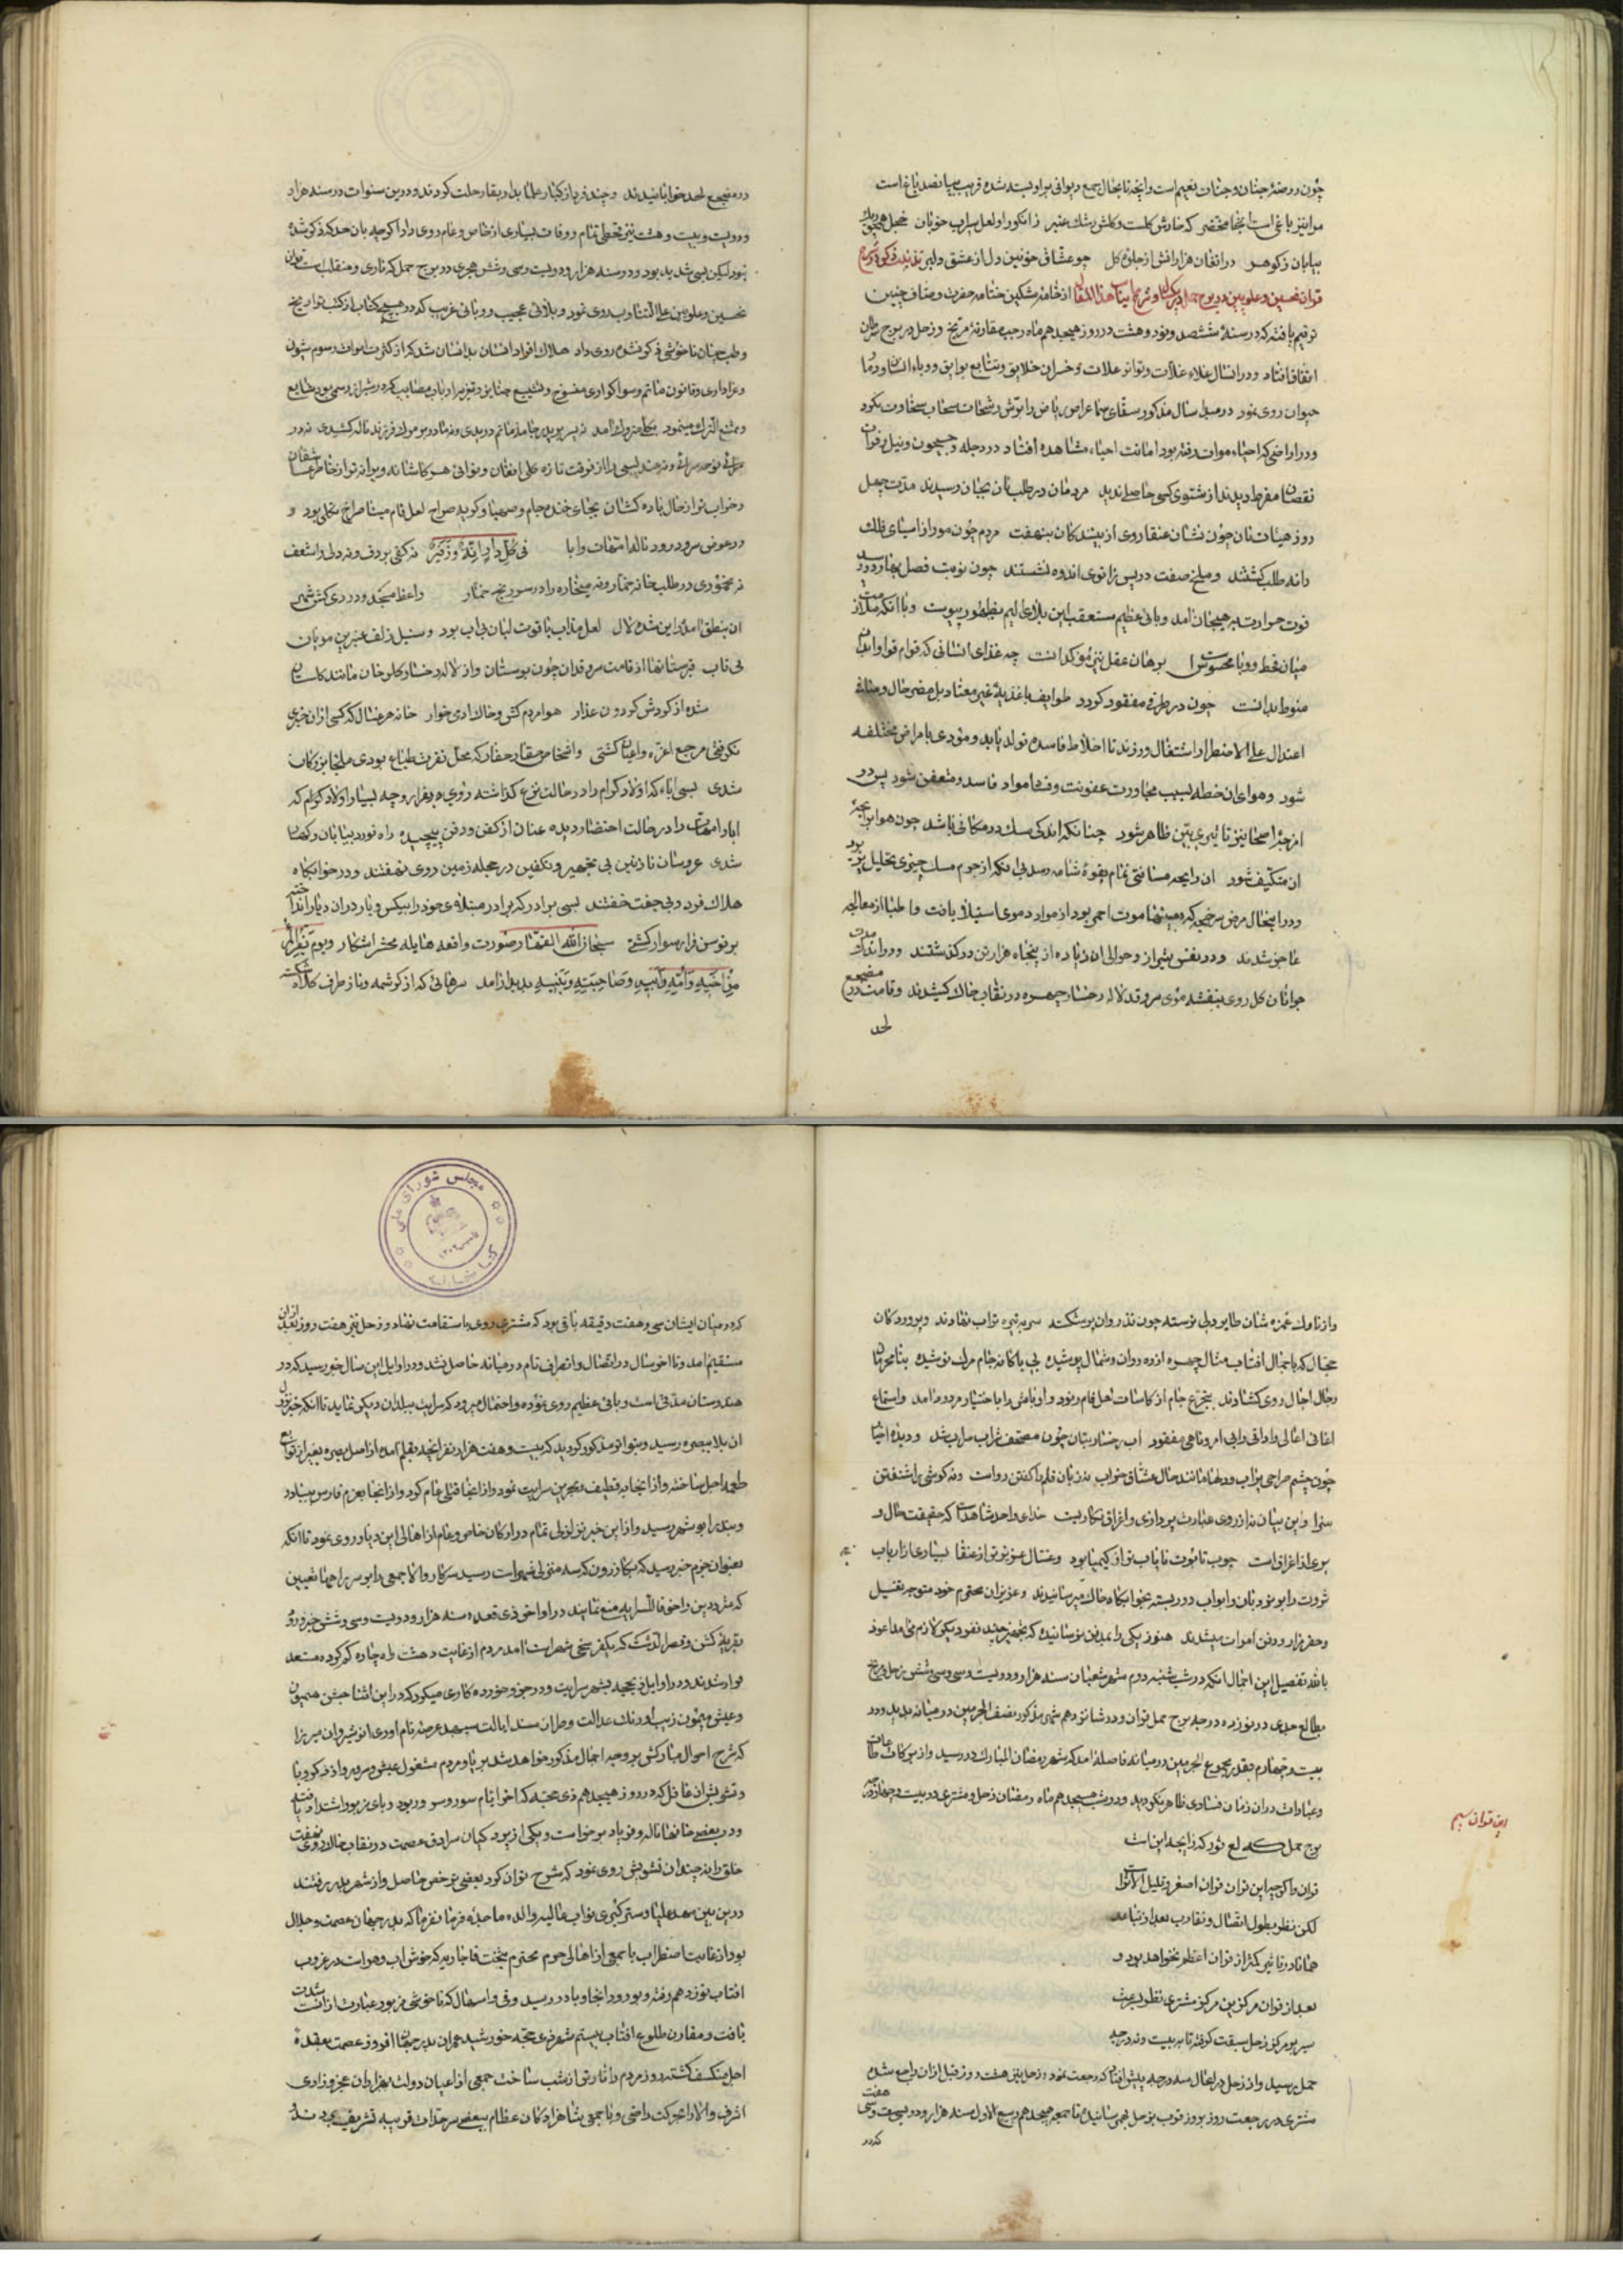 چون روضهٔ جنان و جنان نعیم است و آنچه تا بحال جمع دیوانی بر او بسته شده قریب بپانصد باغ است
مرا نیز باغی است آنجا مختصر که خارش گلست و گلش رشك عنبر ز انکور او لعل سیراب خوبان خجل
بیابان ز کوهر در افغان هزارانش از جلوهٔ کل چو عشاق خونین دل از عشق دلبر
قران نحسین و علویین در برج از خامهٔ مشکین ختامه حضرت وصاف چنین
ترقیم یافته که در سنهٔ ششصد و نود و هشت در روز هیجدهم ماه رجب مقارنهٔ مریخ و زحل در برج سرطان
اتفاق افتاد و در انسال غلاء غلات و تواتر علات و خسران خلایق و تتابع بوایق و وباء انسان و
حیوان روی نمود در مبدا سال مذکور سقای غمام عراص ریاض را بترشح رشحات سحاب سخاوت نکرد
و در اراضی که احیاء موات رفته بود امانت احیاء مشاهده افتاد در دجله و جیحون و نیل و فرات
نقصان مفرط دیدند از مشتوی کسی حاصلی ندید مردمان در طلب نان بجان رسیدند مدت چهل
روز هیئات نان چون نشان عنقا روی از بینندکان بنهفت مردم چون مور از اسیای فلك
دانه طلب کشتند و ملخ صفت در پس زانوی اندوه نشستند چون نوبت فصل بهار در رسید
قوت حرارت در هیجان آمد وبائی عظیم مستعقب این بلای الیم بظهور پیوست و با آنکه ملازمت
میان قحط و وبا محسوس است برهان عقل نیز مؤکد انست چه غذای انسانی که قوام قوا و ابدان
منوط بدانست چون در طرفی مفقود کردد طوایف باغذیهٔ غیر معتاد بل مضر حال و منافی
اعتدال علی الاضطرار اشتغال ورزند تا اخلاط فاسده تولد یابد و مؤدی بامراض مختلفه
شود و هوای ان خطه بسبب مجاورت عفونت وفدا مواد فاسد و متعفن شود پس در
امزجهٔ اصحا نیز تاثیری بین ظاهر شود چنانکه اندکی مسك در مکانی باشد چون هوا برایحهٔ
ان متکیف شود ان رایحه مسافتی تمام بقوهٔ شامه رسد بی انکه از جرم مسك چیزی تحلیل پذیرد
و در اینحال مرض سرخجه که موت احمر بود از مواد دموی استیلا یافت و اطبا از معالجه
عاجز شدند و در نفس شیراز و حوالی ان زیاده از پنجاه هزار تن در کذشتند و در اندك مدت
جوانان کل روی بنفشه موی سرو قد لاله رخسار چهره در نقاب خاك کشیدند و قامت در مضجع
لحد
در مضجع لحد خوابانیدند و چند فر باز کبار علما بدار بقا رحلت کردند و در این سنوات در سنه هزار
و دویست و بیست و هشت نیز قحطی تمام و وفات بسیاری از خاص و عام روی داد اکر چه بان حد که ذکر شد
نبود لیکن بسی شدید بود و در سنه هزار و دویست و سی و شش هجری در برج حمل که ناری و منقلب است قران
نحسین و علویین علی التناوب روی نمود و بلائی عجیب و وبائی غریب که در هیچ کتاب از کتب تواریخ
و طب چنان ناخوشی ذکر نشده روی داد هلاك افراد انسان بدانسان شد که از کثرت اموات رسوم شیون
و عزاداری و قانون ماتم و سوکواری منسوخ و تشییع جنایز و تعزیهٔ ارباب مصایب که در شیراز رسمی بود شایع
و ممتنع الترك مینمود بکلی متروك آمد نه پسر بر پدر جامهٔ ماتم دریدی و نه مادر بر مرك فرزند ناله کشیدی نه در
مرکی نوحه سرائی و نه چند بسی در انفوقت تازه علی افغان و نوائی هر کاشانه ویرانه تر از خاطر عشاق
و خراب تر از حال باده کشان بجای خنده جام و صهبا و کریه صراحی لعل فام مینا صراخ تجلی بود و
در عوض سرود رود نالهٔ امهات و ابا فی کل دار رنة و زفیر نه کفی بر دف و نه دلی را شعف
نه مخموری در طلب خانه خمار و نه میخاره را در سر رنج خمار واعظ مسجد و دردی کش
ان بنطق آمده این شده لال لعل مذاب یاقوت لبان بی اب بود و سنبل زلف عنبرین مویان
بی تاب قبرستانها از قامت سرو قدان چون بوستان و از لاله رخسار کلرخان مانند کلستان
شده از کردش کردون غدار هوا مردم کش و خاك ادمی خوار خانه هر غسال که کسی از ان خبری
نکرفتی مرجع اعزه و اعیان کشتی و اشخاص حقار حفار که محل نفرت طباع بودی ملجا بزرکان
شدی بسی اباء که اولاد کرام را در حالت نزع کذاشته روی بفرار و چه بسیار اولاد کرام که
ابا و امهات را در حالت احتضار دیده عنان از کفن و دفن پیچیده راه نورد بیابان و کهسار
شدی عروسان نازنین بی تجهیز و تکفین در حجله زمین روی نهفتند و در خوابکاه
هلاك فرد و بی جفت خفتند بسی برادر که برادر مبتلای خود را بیکس و یار در ان دیار انداخته
بر توسن فرار سوار کشتی سبحان الله القهار صورت واقعه هایله محشر آشکار و یوم یفر المرء
من اخیه و امه و ابیه و صاحبته و بنیه پدیدار آمد سرهائی که از کرشمه و ناز طرف کلاه شکسته
و از ناوك غمزه شان طایر دلی نرسته چون تذروان پر شکسته سر بتیره تراب نهادند و پرورد کان
حجال که با جمال افتاب مثال چهره از ده دوان و شمال پوشیده بی یاکانه جام مرك نوشیده بنا محرمان
رجال اجال روی کشادند بتجرع جام از کاسات اجل فام رنود و اوباش را با اختیار مردود آمد و استماع
اغانی اغالی و ادانی را بی امر و ناهی مفقود اب رخسار بتان چون مصحف شراب سراب شد و دیده احیا
چون چشم صراحی پر اب و دلها مانند حال عشاق خراب نه زبان قلم را کفتن رواست و نه کوشی را شنفتن
سزا و این بیان نه از روی عبارت پردازی و اغراق نکاریست خدای واحد شاهد است که حقیقت حال و
بری از اغراق است چوب تابوت نایاب تر از کیمیا بود و غسال عزیز تر از عنقا بسیاری از ارباب
ثروت را بر نردبان و ابواب در بسته بخوابکاه خاك میرسانیدند و عزیزان محترم خود متوجه تغسیل
و حفر مزار و دفن اموات میشدند هنوز یکی را بمدفن نرسانیده که تجهیز چند نفر دیکر لازم می امد اعوذ
بالله تفصیل این اجمال انکه در شب شنبه دوم شهر شعبان سنه هزار و دویست و سی و شش زحل و مریخ
بطالع جدی در نوزده درجه برج حمل قران و در شانزدهم شهر مذکور نصف الجرمین در میانه پدید و در
بیست و چهارم بقدر مجموع الجرمین در میانه فاصله آمد که شهر رمضان المبارك در رسید و از برکات طاعات
و عبادات در ان زمان فسادی ظاهر نکردید و در شب هیجدهم ماه رمضان زحل و مشتری در بیست و چهار درجه
برج حمل که لع نور که زایجه این است
این قران سیم
قران و اکر چه این قران قران اصغر و قلیل الاثر است
لکن نظر بطول اتصال و تقارب بعد از تباعد
همانا در تاثیر کمتر از قران اعظم نخواهد بود و
بعد از قران مرکزین مرکز مشتری نظر بسرعت
سیر بر مرکز زحل سبقت کرفته تا به بیست و نه درجه
حمل رسید و از زحل در انحال سه درجه پیش افتاد که رجعت نمود و زحل نیز هشت روز قبل از ان راجع شده
مشتری در رجعت روز بروز قرب بزحل بهم رسانیده تا جمعه هیجدهم ربیع الاول سنه هزار و دویست و سی هفت
که در
که در میان ایشان سی و هفت دقیقه باقی بود که مشتری روی باستقامت نهاد و زحل نیز هفت روز بعد از ان
مستقیم آمد و تا اخر سال در اتصال و انصرافی تام در میانه حاصل نشد و در اوایل این سال خبر رسید که در
هندوستان مدتی است وبائی عظیم روی نموده و احتمال میرود که سرایت ببلدان دیکر نماید تا آنکه خبر نزول
ان بلا ببصره رسید و بتواتر مذکور کردید که بیست و هفت هزار نفر انچه بقلم آمده از اصل بصره بغیر از توابع
طعمه اجل ساخته و از انجا به قطیف و بحرین سرایت نمود و از انجا قتلی عام کرد و از انجا بعزم فارس ببنادر
و بندر ابوشهر رسید و از این خبر تزلزلی تمام در ارکان خاص و عام از اهالی این دیار روی نمود تا آنکه
بعنوان جزم خبر رسید که بکازرون که سه منزلی شهر است رسید سرکار والا جمعی را بر سر راهها تعیین
که مترددین را حتی قافله سرا به منع نمایند در اواخر ذی قعده سنه هزار و دویست و سی و شش خبر ورود
بقریهٔ کشن و قصر الدشت که یکفرسخی شهر است امد مردم از غایت دهشت راه چاره کم کرده مستعد
فرار شدند و در اوایل ذیحجه بشهر سرایت و در جزو خورده کاری میکرد که در این اثنا جشن همیون
و عیش میمون زیب اورنك عدالت و طراز مسند ایالت سپهبد عرصه نام اوری انوشیروان میرزا
که شرح احوال مبارکش بر وجه اجمال مذکور خواهد شد برپا و مردم مشغول عیش و سرور و از ذکر وبا
و تشویش ان غافل که در روز هیجدهم ذی حجه که اخر ایام سور و سرور بود وبای مزبور اشتداد یافته
و در بعضی خانها ناله و فریاد برخواست و یکی از پردکیان سرادق عصمت در نقاب خاك روی نهفت
خلق را نه چندان تشویش روی نمود که شرح توان کرد بعضی مرخص حاصل و از شهر بدر رفتند
در این بین مهد علیا و ستر کبری نواب عالیه والده ماجدهٔ فرمانفرما که بدر جهان عصمت و جلال
بود از غایت اضطراب با جمعی از اهالی حرم محترم بتخت قاجاریه که خوش اب و هواست در غروب
افتاب نوزدهم رفته و بورود انجا وبا در رسید و قی و اسهال که ناخوشی مزبور عبارت از انست شدت
یافت و مقارن طلوع افتاب بیستم شهر ذی حجه خورشید عمران بدر جهان افروز عصمت بعقدهٔ
اجل منکسف کشته روز مردم را تارتر از شب ساخت جمعی از اعیان دولت بهزاران عجز و زاری
اشرف والا را بحرکت راضی و با جمعی شاهزادکان عظام ببعضی سرحدات قریبه تشریف بردند
مجلس شورای ملی
کتابخانه